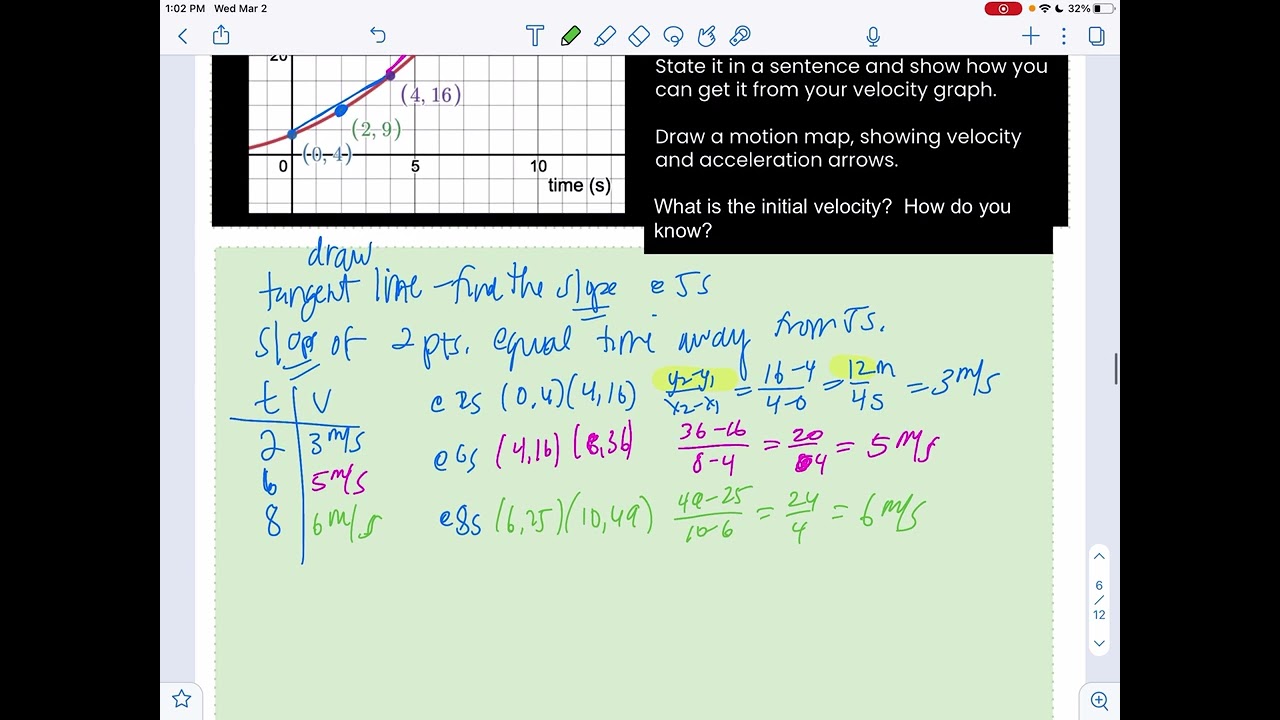 1:02 PM Wed Mar 2
32%
T
20
(4, 16)
(2, 9)
(0, 4)
0 5 10
time (s)
State it in a sentence and show how you
can get it from your velocity graph.
Draw a motion map, showing velocity
and acceleration arrows.
What is the initial velocity? How do you
know?
draw
tangent line - find the slope @ 5s
slope of 2 pts. equal time away from 5s.
t v
2 3 m/s
6 5 m/s
8 6 m/s
@ 2s (0,4)(4,16) y2-y1/x2-x1 = 16-4/4-0 = 12m/4s = 3 m/s
@ 6s (4,16)(8,36) 36-16/8-4 = 20/4 = 5 m/s
@ 8s (6,25)(10,49) 49-25/10-6 = 24/4 = 6 m/s
6
/
12